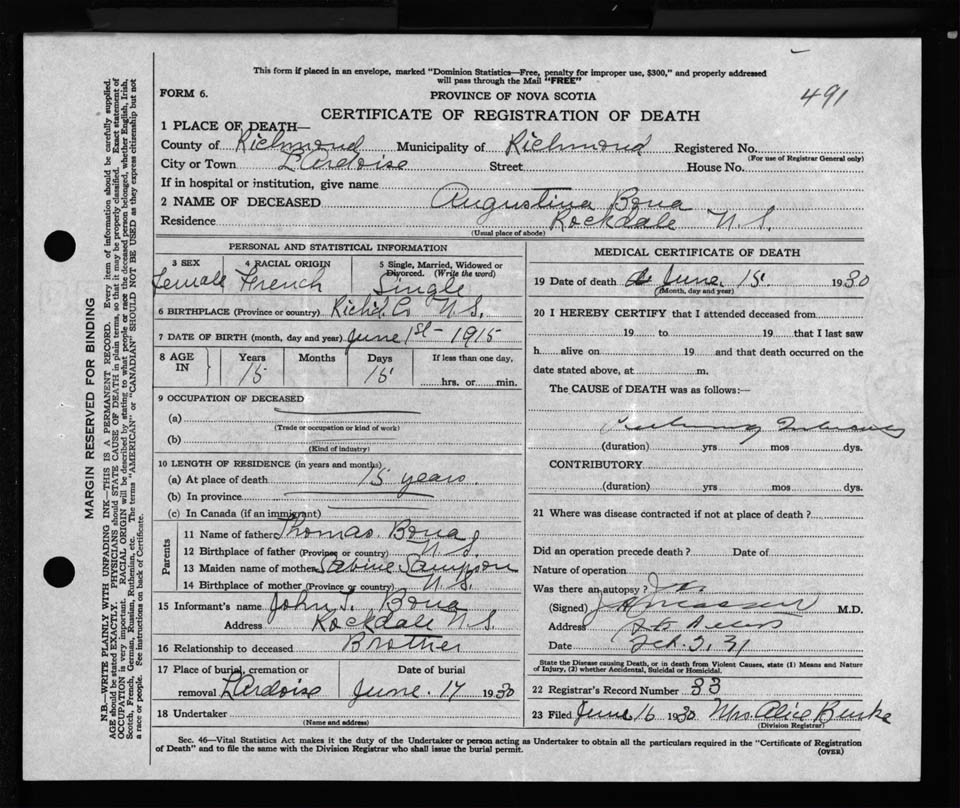 This form if placed in an envelope, marked "Dominion Statistics—Free, penalty for improper use, $300," and properly addressed
will pass through the Mail "FREE"
491
FORM 6.
PROVINCE OF NOVA SCOTIA
CERTIFICATE OF REGISTRATION OF DEATH
1 PLACE OF DEATH—
County of Richmond Municipality of Richmond Registered No.
(For use of Registrar General only)
City or Town L'Ardoise Street House No.
If in hospital or institution, give name
2 NAME OF DECEASED Augustina Bona
Residence Rockdale N.S.
(Usual place of abode)
PERSONAL AND STATISTICAL INFORMATION
3 SEX Female
4 RACIAL ORIGIN French
5 Single, Married, Widowed or
Divorced. (Write the word)
Single
6 BIRTHPLACE (Province or country) Richd. Co N.S.
7 DATE OF BIRTH (month, day and year) June 1st - 1915
8 AGE IN Years Months Days If less than one day,
15 15 hrs. or min.
9 OCCUPATION OF DECEASED
(a)
(Trade or occupation or kind of work)
(b)
(Kind of industry)
10 LENGTH OF RESIDENCE (in years and months)
(a) At place of death 15 years
(b) In province
(c) In Canada (if an immigrant)
Parents
11 Name of father Thomas Bona
12 Birthplace of father (Province or country) N.S.
13 Maiden name of mother Sabine Sampson
14 Birthplace of mother (Province or country) N.S.
15 Informant's name John S. Bona
Address Rockdale N.S.
16 Relationship to deceased Brother
17 Place of burial, cremation or Date of burial
removal L'Ardoise June 17 1930
18 Undertaker
(Name and address)
MEDICAL CERTIFICATE OF DEATH
19 Date of death June 15 1930
(Month, day and year)
20 I HEREBY CERTIFY that I attended deceased from
19 to 19 that I last saw
h alive on 19 and that death occurred on the
date stated above, at m.
The CAUSE of DEATH was as follows:—
(duration) yrs mos dys.
CONTRIBUTORY
(duration) yrs mos dys.
21 Where was disease contracted if not at place of death?
Did an operation precede death? Date of
Nature of operation
Was there an autopsy?
(Signed) M.D.
Address
Date Feb. 2, 31
State the Disease causing Death, or in death from Violent Causes, state (1) Means and Nature
of Injury, (2) whether Accidental, Suicidal or Homicidal.
22 Registrar's Record Number 33
23 Filed June 16 1930 Mrs Alice Burke
(Division Registrar)
Sec. 46—Vital Statistics Act makes it the duty of the Undertaker or person acting as Undertaker to obtain all the particulars required in the "Certificate of Registration
of Death" and to file the same with the Division Registrar who shall issue the burial permit.
(OVER)
MARGIN RESERVED FOR BINDING
N.B.—WRITE PLAINLY WITH UNFADING INK—THIS IS A PERMANENT RECORD. Every item of information should be carefully supplied.
AGE should be stated EXACTLY. PHYSICIANS should STATE CAUSE OF DEATH in plain terms, so that it may be properly classified. Exact statement of
OCCUPATION is very important. RACIAL ORIGIN will be described by stating to what people or race the deceased person belonged, whether English, Irish,
Scotch, French, German, Russian, Ruthenian, etc. The terms "AMERICAN" or "CANADIAN" SHOULD NOT BE USED as they express citizenship but not
a race or people. See instructions on back of Certificate.